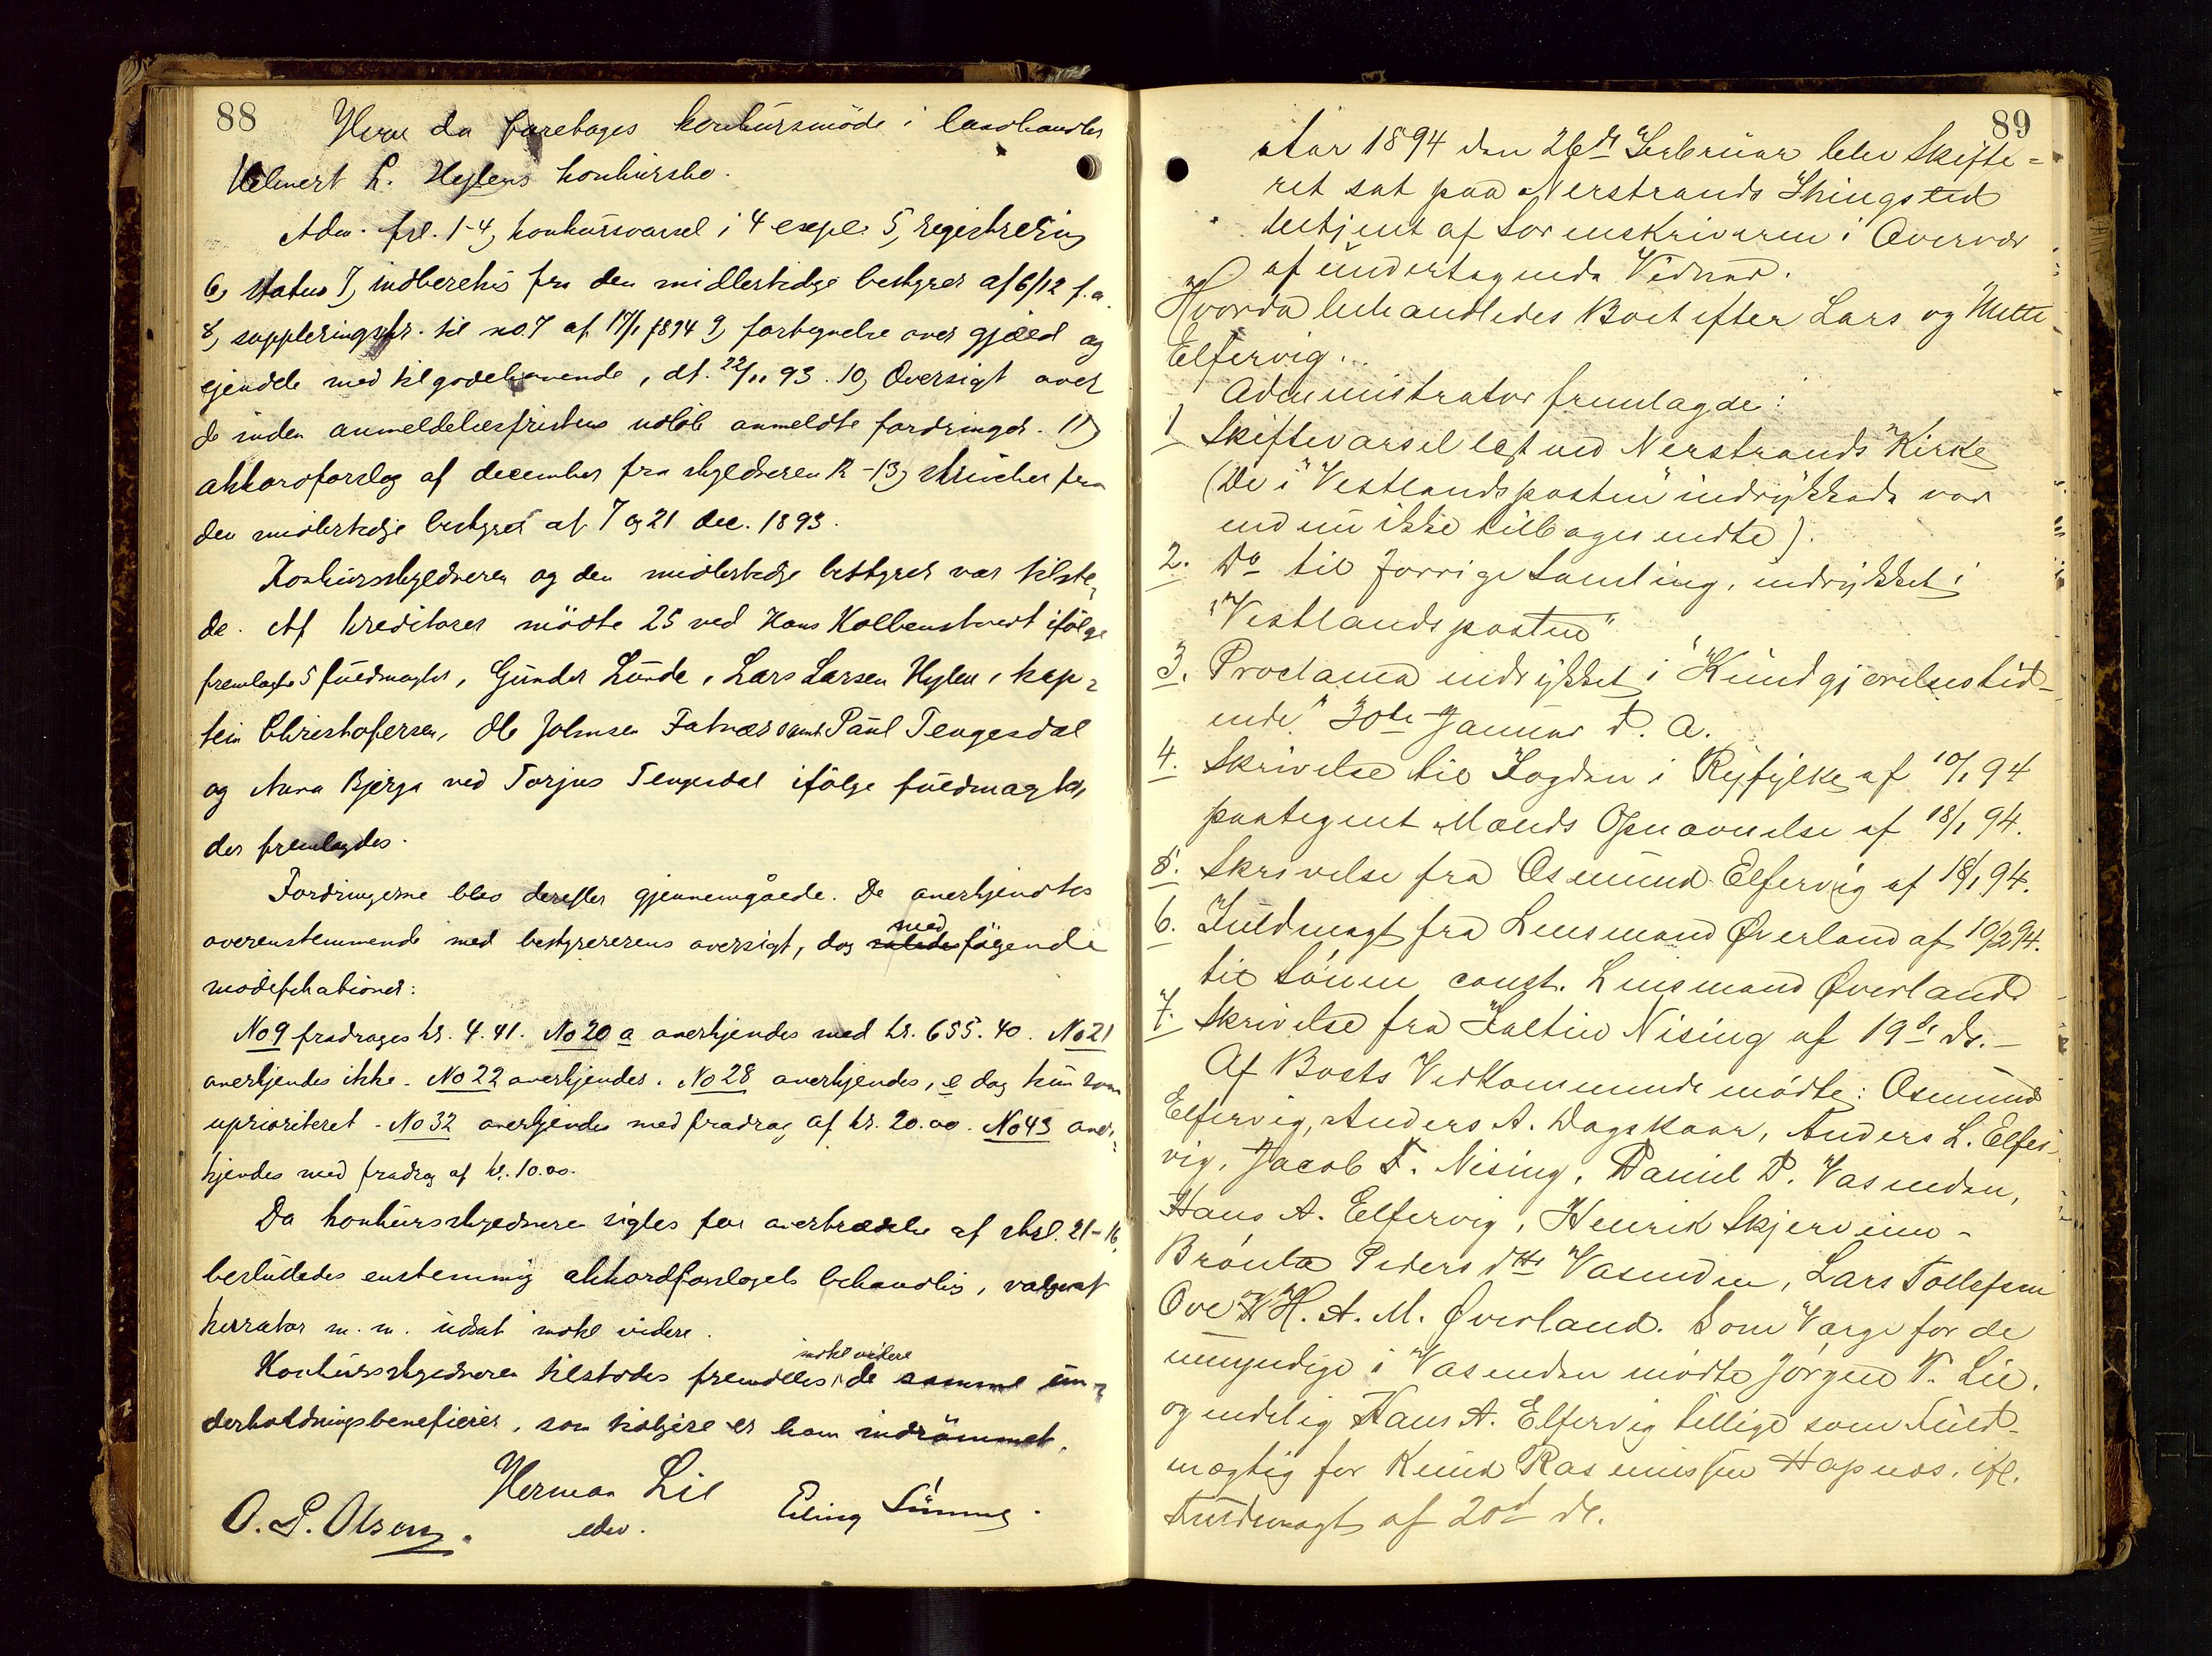 88
Hvor da foretages konkursmöde i landhandler
Helmert L. Hylens konkursbo.
Adm. frl. 1-4, konkursvarsel i 4 expl. 5, registrering
6, status 7, indberetn fra den midlertidige bestyrer af 6/12 f.a.
8, suppleringsskr. til no. 7 af 17/1 1894 9, fortegnelse over gjæld og
ejendele med tilgodehavende, dt. 22/11 93. 10, Oversigt over
de inden anmeldelsesfristens udlöb anmeldte fordringer. 11,
akkordforslag af december fra skyldneren 12-13, skrivelser fra
den midlertidige bestyrer af 7 og 21 dec. 1893.
Konkursskyldneren og den midlertidige bestyrer var tilste-
de. Af kreditorer mödte 25 ved Hans Kolbenstvedt ifölge
fremlagte 5 fuldmagter, Gunder Lunde, Lars Larsen Hylen, kap-
tein Christofersen, Ole Johnsen Fatnæs samt Paul Tengesdal
og Anna Bjerga ved Torjus Tengesdal ifölge fuldmagter,
der fremlagdes.
Fordringerne blev derefter gjennemgåede. De anerkjendtes
overenstemmende med bestyrererens oversigt, dog således med fölgende
modifikationer:
No 9 fradrages kr. 4.41. No 20 a anerkjendes med kr. 655.40. No 21
anerkjendes ikke. No 22 anerkjendes. No 28 anerkjendes, dog kun som
uprioriteret. No 32 anerkjendes med fradrag af kr. 20.00. No 43 aner-
kjendes med fradrag af kr. 10.00.
Da konkursskyldneren sigtes for overtrædelse af strl. 21-16,
besluttedes enstemmig akkordforslagets behandlig, valg af
kurator m. m. udsat indtil videre.
Konkursskyldneren tilstodes fremdeles indtil videre de samme un-
derholdningsbeneficier, som tidligere er ham indrömmet.
Herman Lie
O. P. Olsen. edsv. Elling
89
Aar 1894 den 26de Februar blev Skifte-
ret sat paa Nerstrands Thingsted
betjent af Sorenskriveren i Overvær
af undertegnede Vidner.
Hvorda behandledes Boet efter Lars og Mette
Elfervig.
Administrator fremlagde:
1 Skiftevarsel læst ved Nerstrands Kirke
(De i "Vestlandsposten" indrykkede var
endnu ikke tilbagesendte).
2. Do til forrige Samling, indrykket i
"Vestlandsposten"
3. Proclama indrykket i "Kundgjørelsestid-
ende" 30te Januar d. A.
4. Skrivelse til Fogden i Ryfylke af 10/1 94
paategnet Mænds Opnævnelse af 18/1 94.
5. Skrivelse fra Osmund Elfervig af 18/1 94.
6. Fuldmagt fra Lensmand Øverland af 10/2 94.
til Sønnen const. Lensmand Øverland
7. Skrivelse fra Nising af 19de ds.-
Af Boets Vedkommende mødte: Osmund
Elfervig, Anders A. Dagskaar, Anders L. Elfer-
vig, Jacob T. Nising, Daniel P. Vasenden,
Hans A. Elfervig, Henrik Skjerveim -
Brønla Pedersdtr Vasenden, Lars Tollefsen
Ove H. A. M. Øverland. Som Værge for de
umyndige i Vasenden mødte Jørgen T. Lie.
og endelig Hans A. Elfervig tillige som Fuld-
mægtig for Knud Rasmussen Hapnes. ifl.
Fuldmagt af 20d ds.